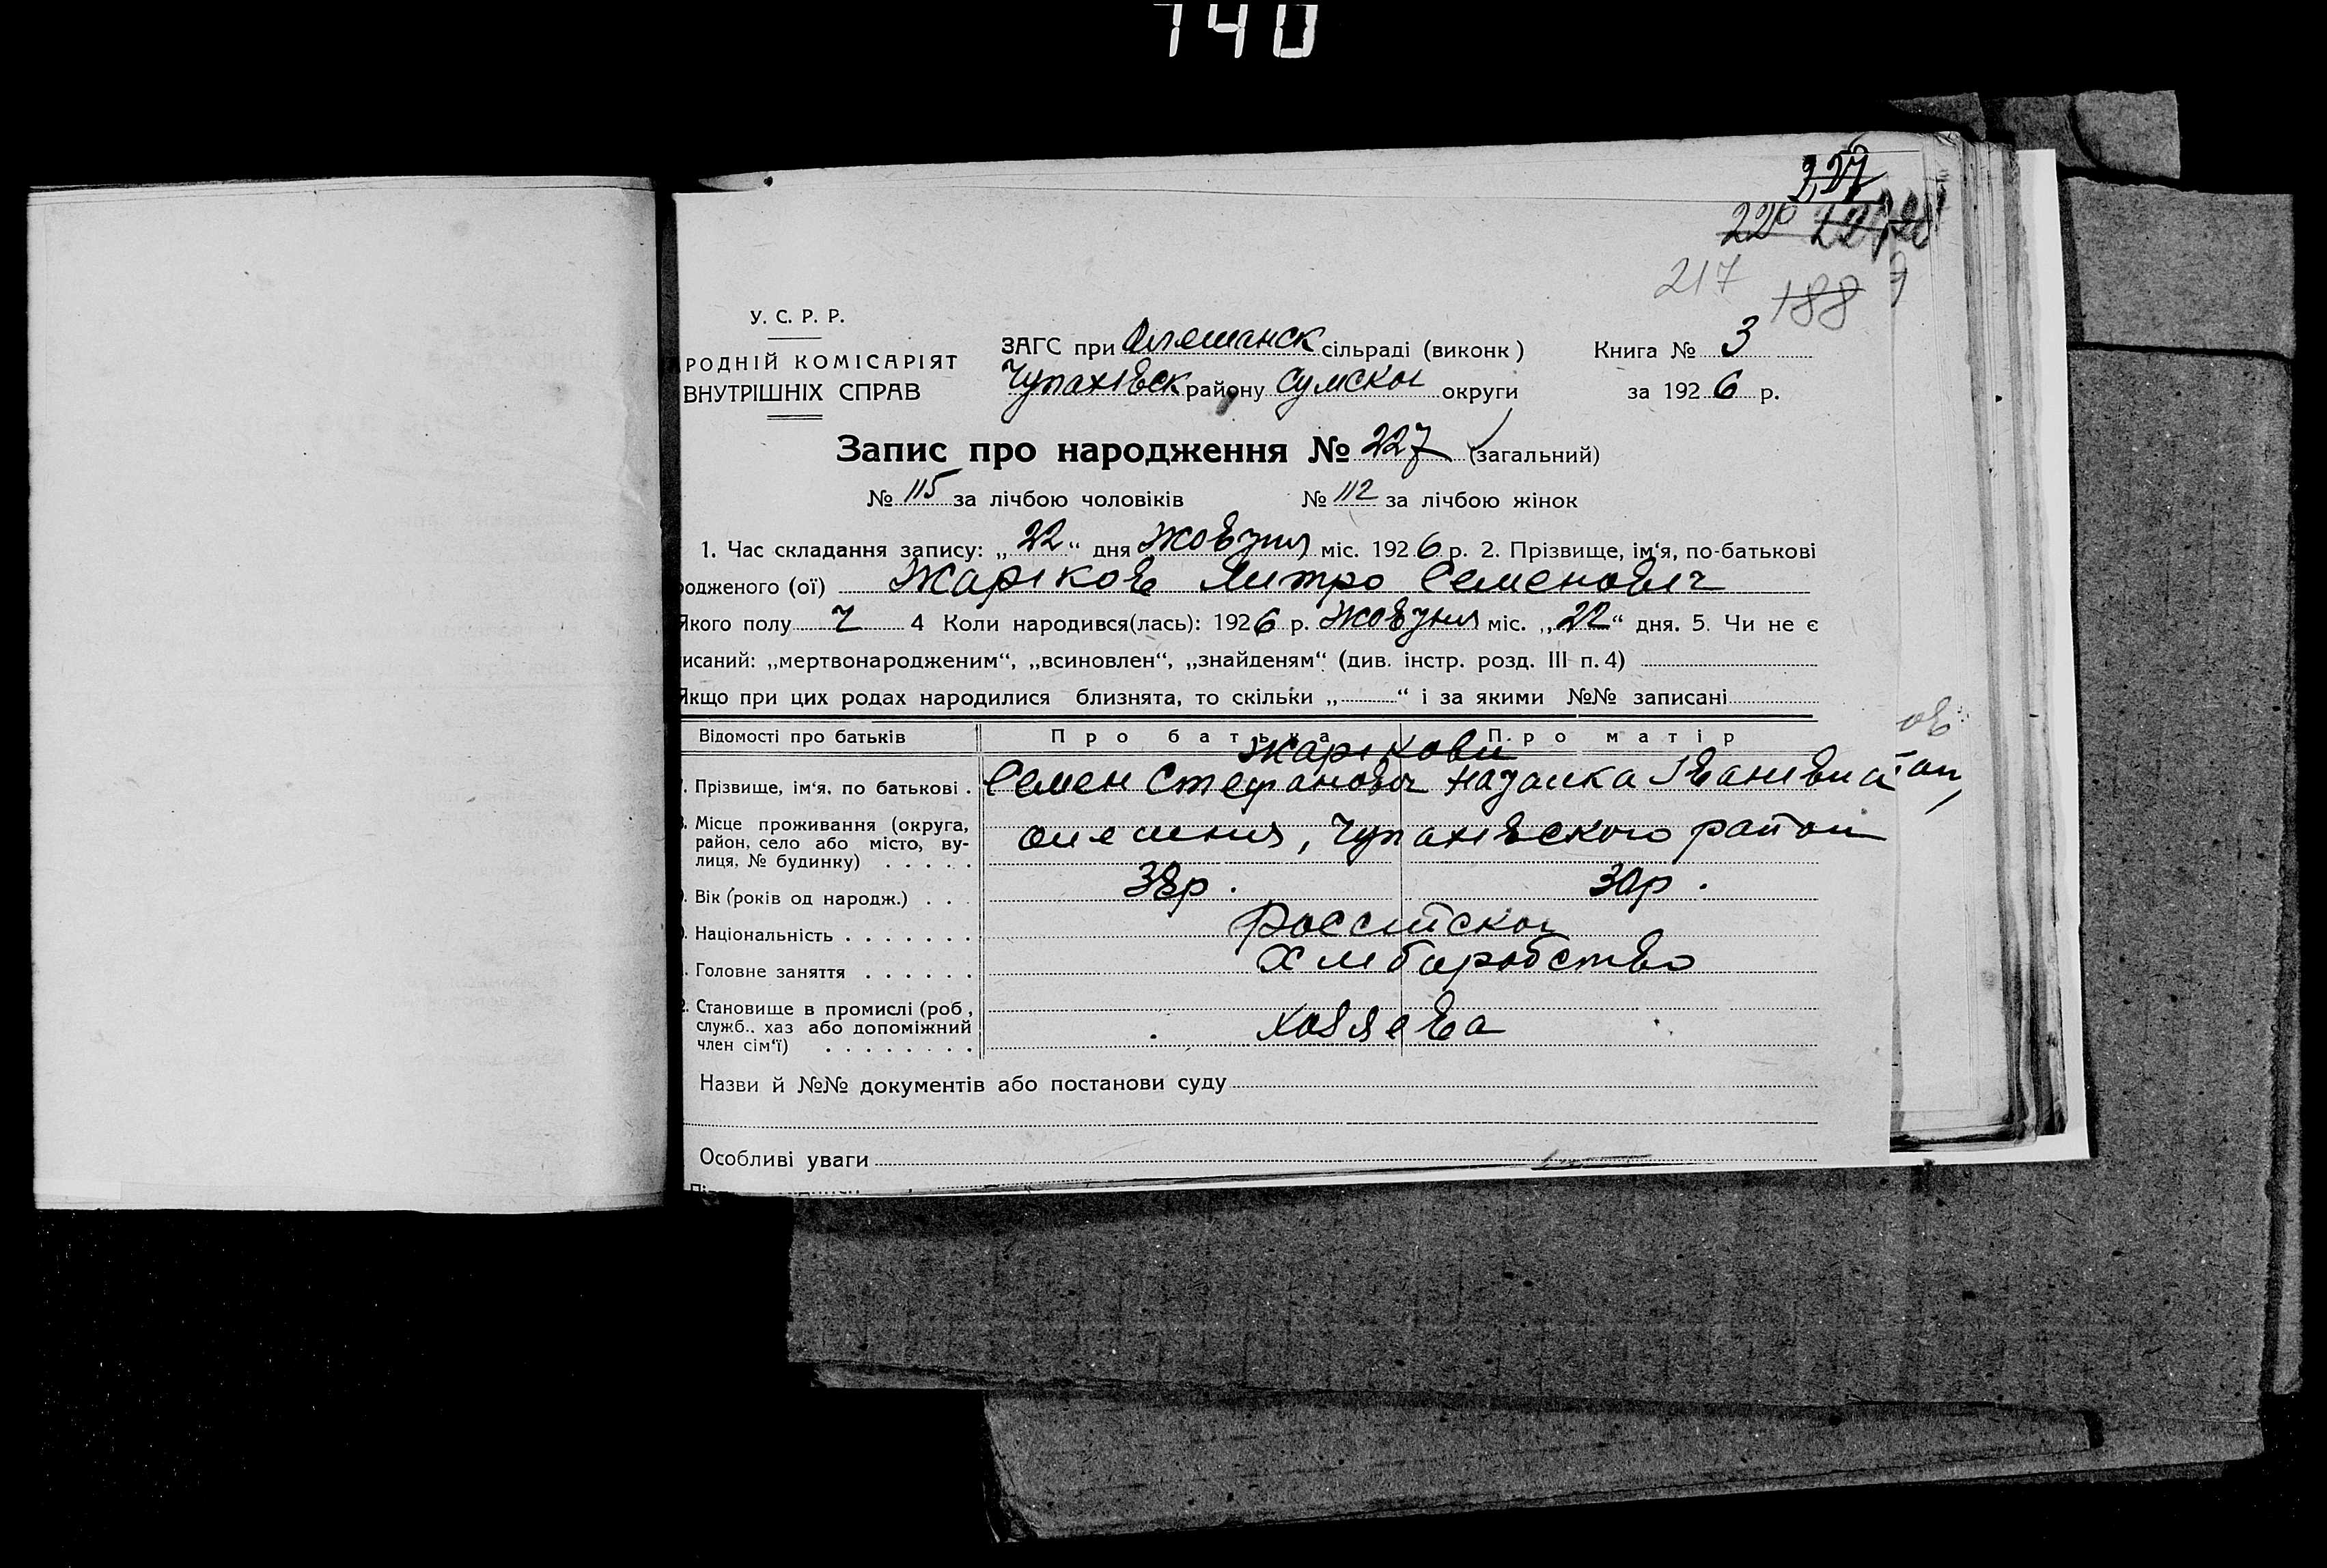 140
227
220 227
217 188
У. С. Р. Р.
РОДНІЙ КОМІСАРІЯТ
ВНУТРІШНІХ СПРАВ
ЗАГС при Олешанск сільраді (виконк)
Чупахівск району Сумскої округи
Книга № 3
за 1926 р.
Запис про народження № 227 (загальний)
№ 115 за лічбою чоловіків № 112 за лічбою жінок
1. Час складання запису: „22“ дня Жовтня міс. 1926 р. 2. Прізвище, ім'я, по-батькові
родженого (ої) Жаріков Митро Семенович
Якого полу ч 4 Коли народився(лась): 1926 р. Жовтня міс. „22“ дня. 5. Чи не є
писаний: „мертвонародженим“, „всиновлен“, „знайденям“ (див. інстр. розд. III п. 4)
Якщо при цих родах народилися близнята, то скільки „ “ і за якими №№ записані
Відомості про батьків Про батька Про матір
Жарікови
7. Прізвище, ім'я, по батькові . Семен Стефанович Наталка Іванівна
8. Місце проживання (округа, район, село або місто, вулиця, № будинку) . . . . . Олешня, Чупахівского району
. Вік (років од народж.) . . . 38р. 30р.
. Національність . . . . . . . Російскої
. Головне заняття . . . . . . Хлібаробство
2. Становище в промислі (роб, служб.. хаз або допоміжний член сім'ї) . . . . . . . . Хазяєва
Назви й №№ документів або постанови суду
Особливі уваги